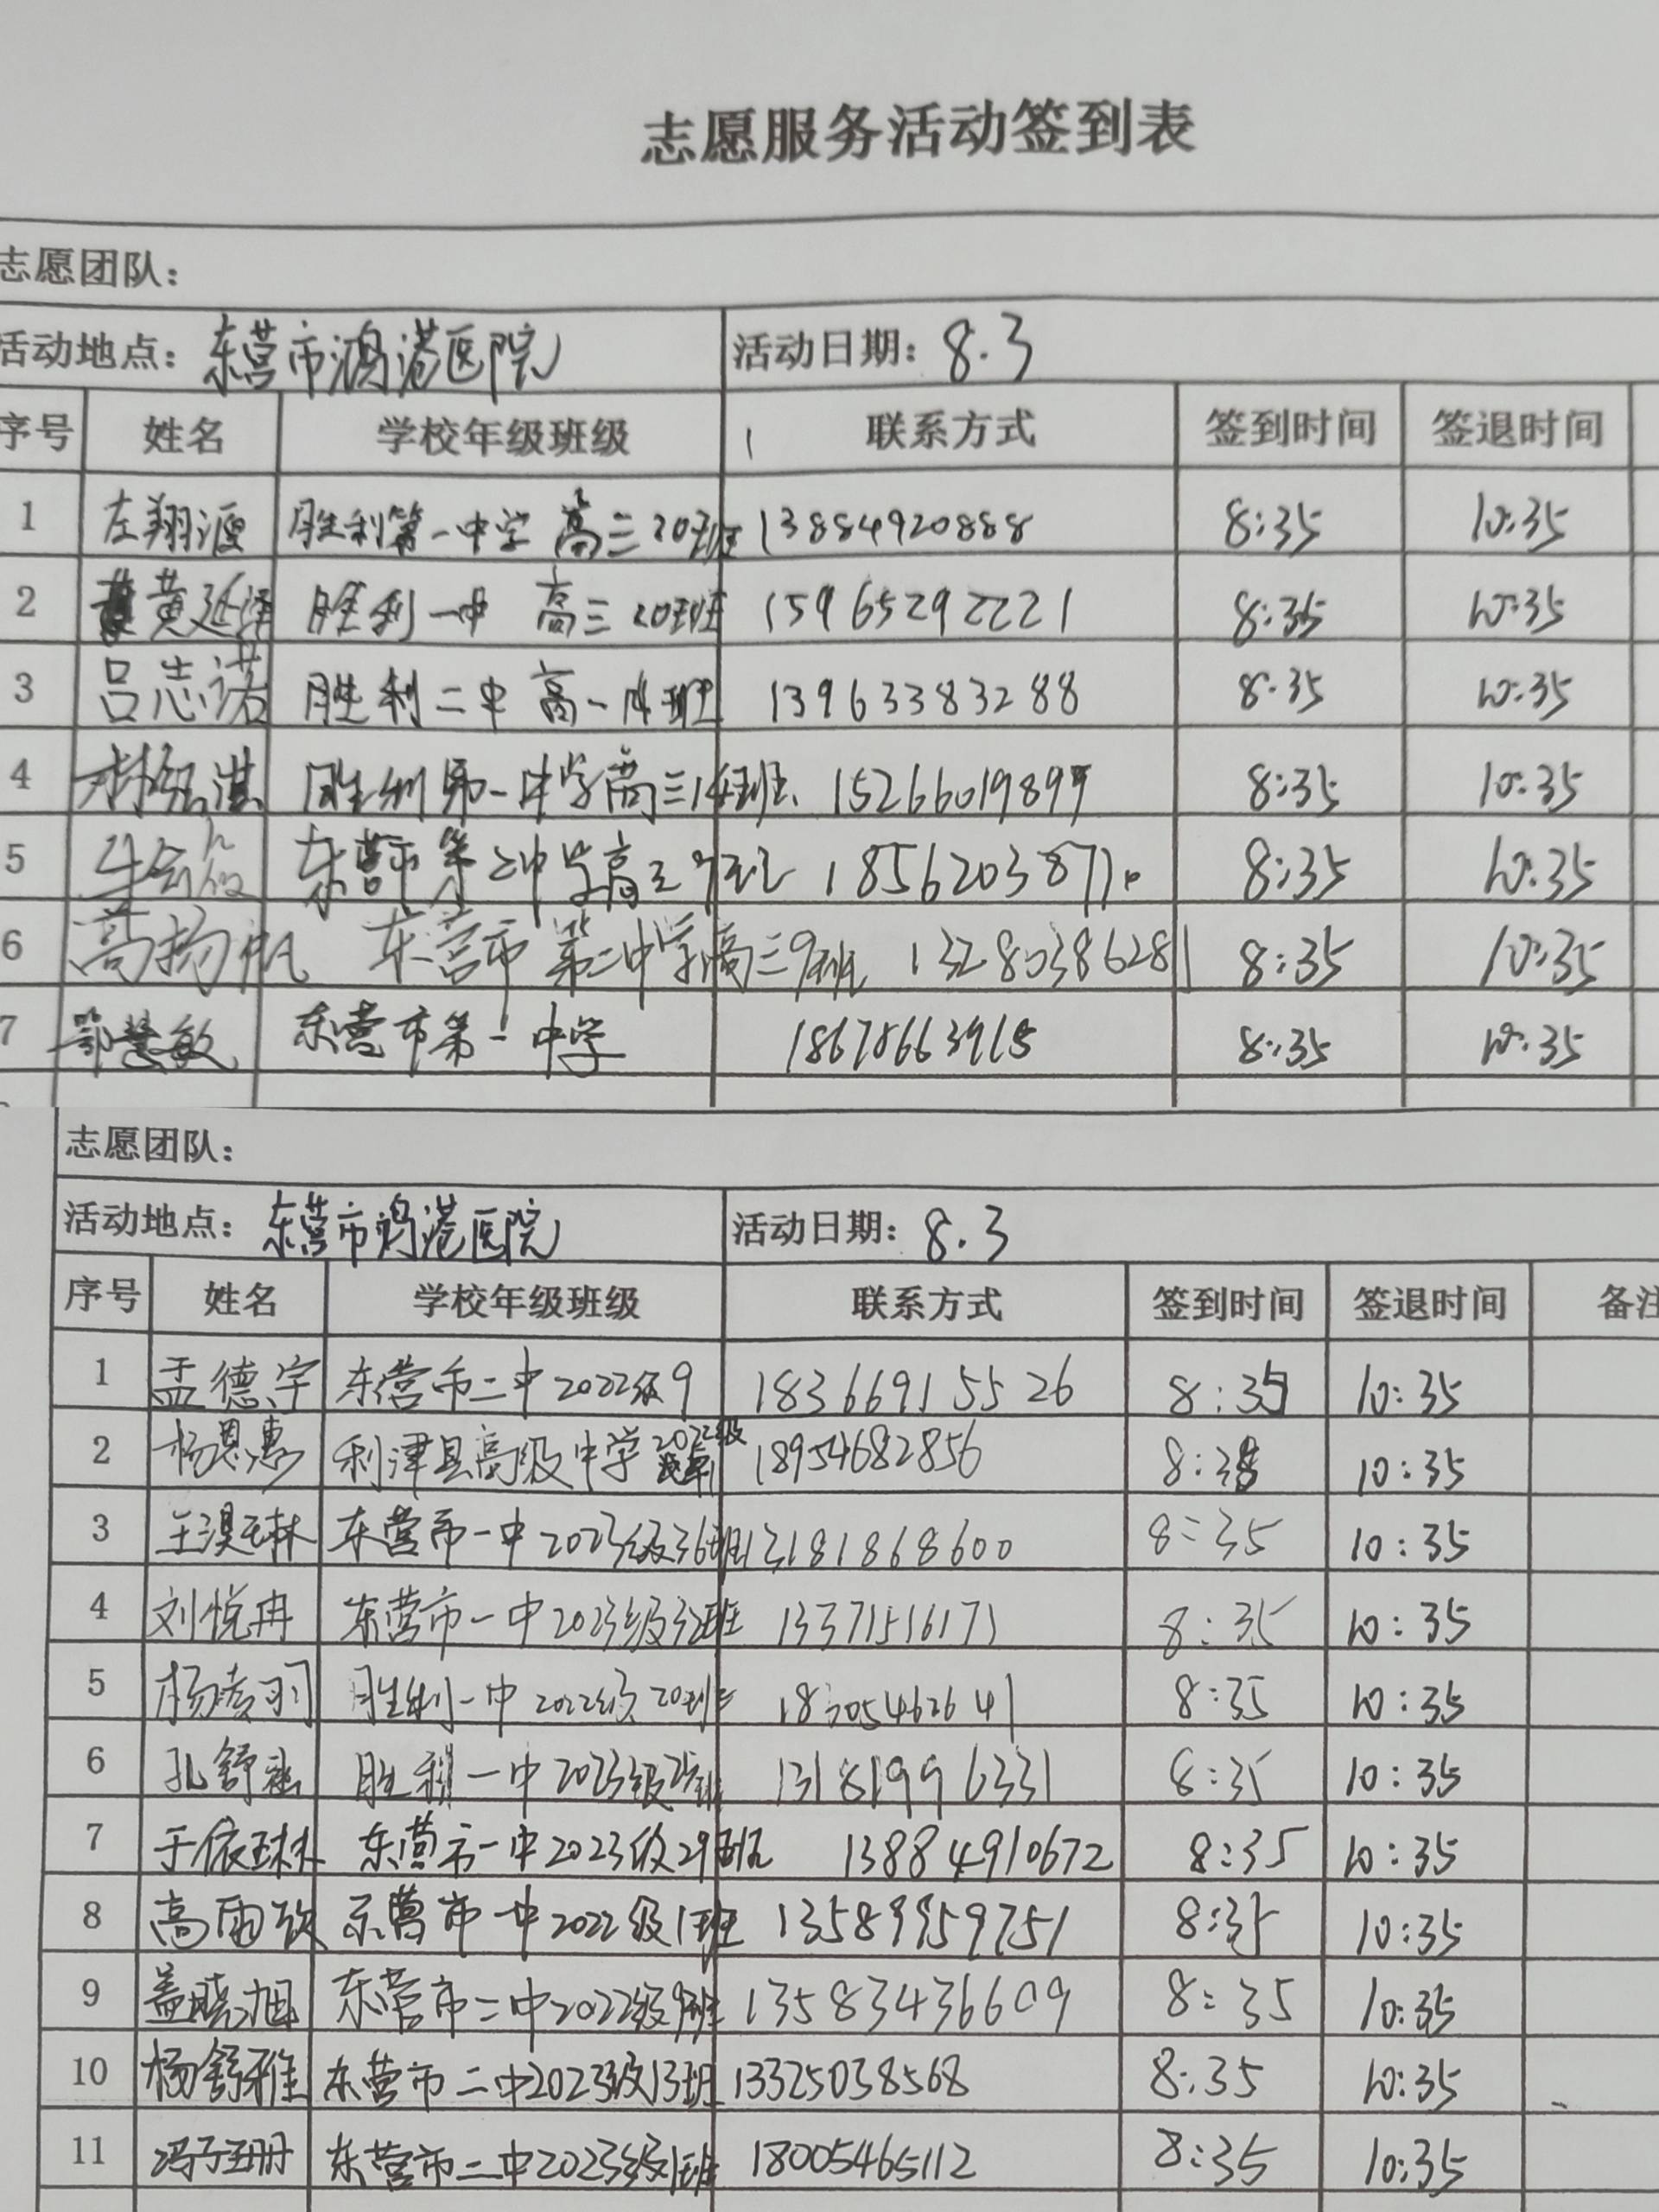 志愿服务活动签到表
志愿团队：
活动地点：东营市鸿港医院 活动日期：8.3
序号 姓名 学校年级班级 联系方式 签到时间 签退时间
1 左翔 胜利第一中学 高三20班 13884920888 8:35 10:35
2 黄延泽 胜利一中 高三20班 15965292221 8:35 10:35
3 吕志诺 胜利二中 高一14班 13963383288 8:35 10:35
4 胜利第一中学高三14班 8:35 10:35
5 东营市第二中学高三 8:35 10:35
6 高扬帆 东营市第二中学高三9班 13280386281 8:35 10:35
7 鄂慧敏 东营市第一中学 8:35 10:35
志愿团队：
活动地点：东营市鸿港医院 活动日期：8.3
序号 姓名 学校年级班级 联系方式 签到时间 签退时间 备注
1 孟德宇 东营市二中2022级9 18366915526 8:35 10:35
2 杨恩惠 利津县高级中学2022级 18954682856 8:38 10:35
3 王淏琳 东营市一中2023级36班 13181868600 8:35 10:35
4 刘悦冉 东营市一中2023级32班 13371516171 8:35 10:35
5 杨 羽 胜利一中2022级20班 18305462641 8:35 10:35
6 孔舒 胜利一中2023级 13181996331 8:35 10:35
7 于依琳 东营市一中2023级29班 13884910672 8:35 10:35
8 高雨欣 东营市一中2022级1班 13589959751 8:35 10:35
9 盖晓旭 东营市二中2022级9班 13583436609 8:35 10:35
10 杨舒雅 东营市二中2023级13班 13325038568 8:35 10:35
11 冯子珊 东营市二中2023级1班 18005465112 8:35 10:35